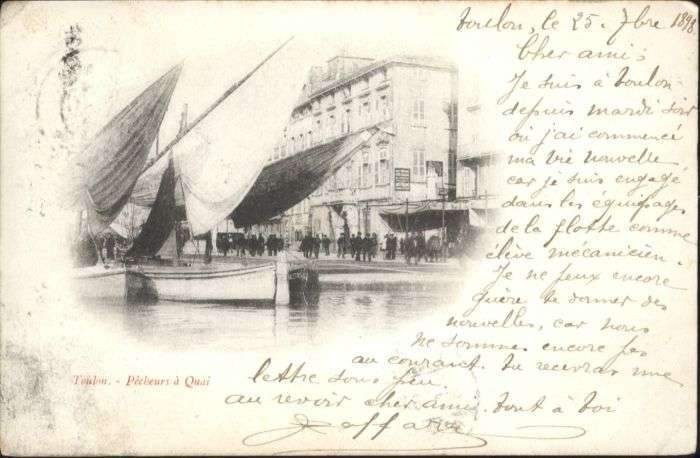 Toulon, le 25. 7bre 1898
Cher ami:
Je suis à Toulon
depuis mardi soir
où j'ai commencé
ma vie nouvelle
car je suis engagé
dans les équipages
de la flotte comme
élève mécanicien.
Je ne peux encore
guère te donner des
nouvelles, car nous
ne sommes encore pas
au courant. tu recevras une
lettre sous peu.
au revoir cher ami. tout à toi
Toulon. - Pêcheurs à Quai